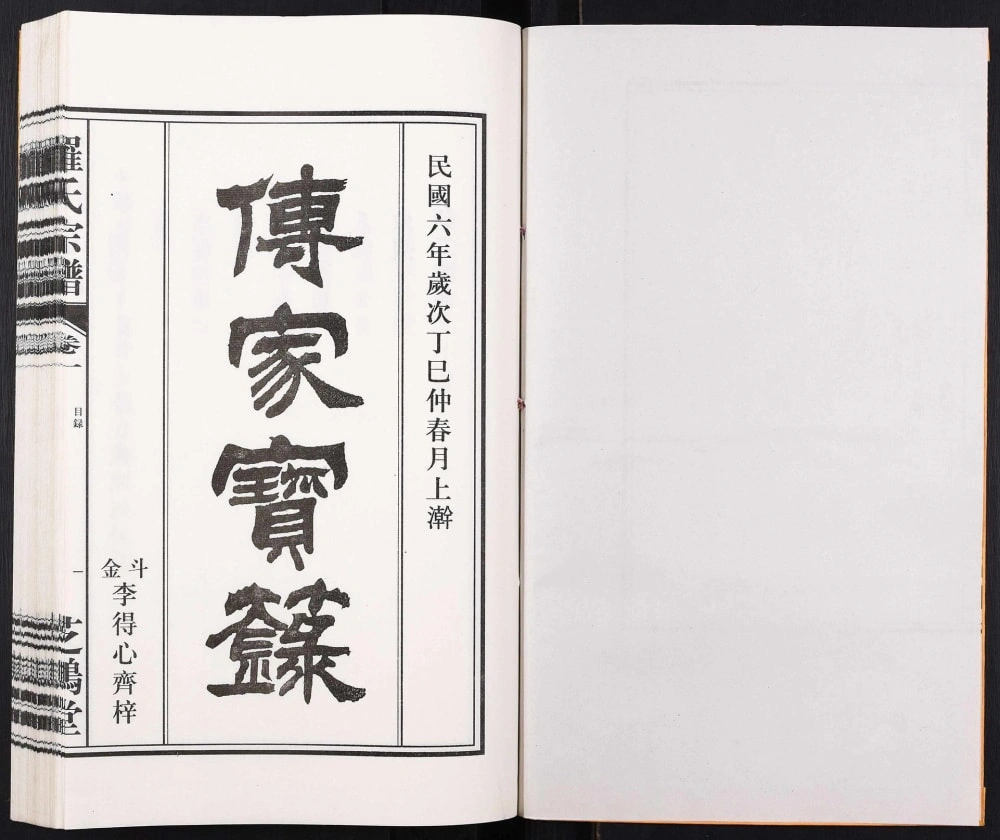 民國六年歲次丁巳仲春月上澣
傳家寶籙
斗金李得心齊梓
羅氏宗譜
卷一
目録
一
芝鶴堂